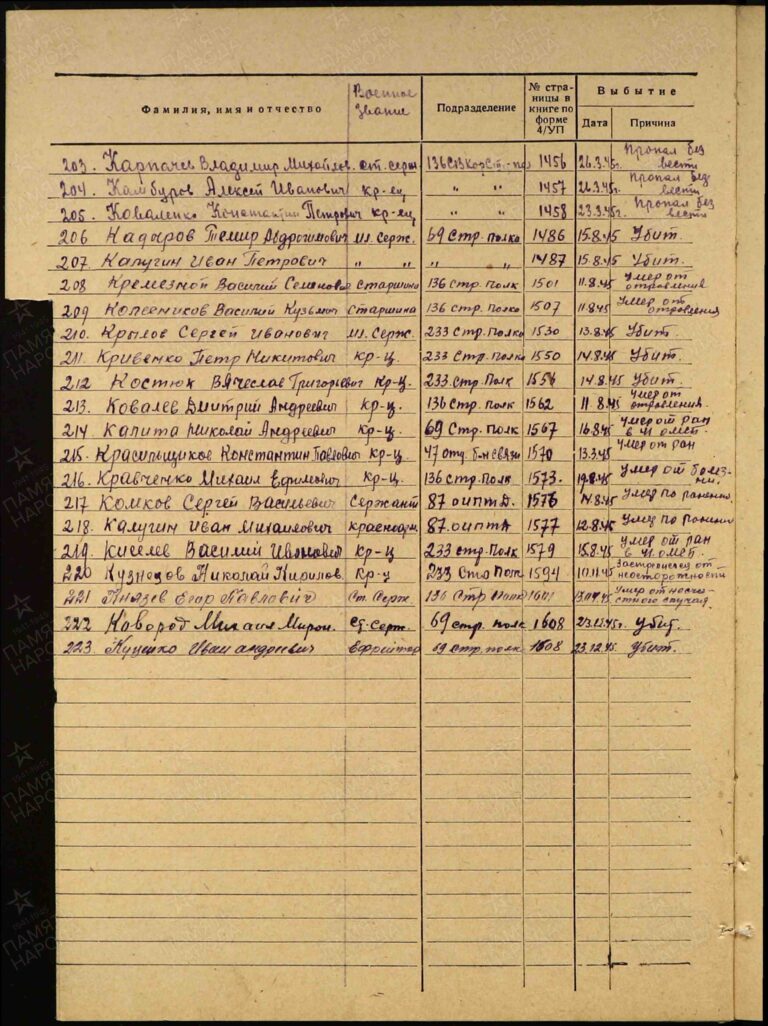 Фамилия, имя и отчество Военное звание Подразделение № страницы в книге по форме 4/УП Выбытие Дата Причина
203. Карпачев Владимир Михайлов. ст. серж 136 Стр. 1456 26.3.45г. Пропал без вести
204. Камбуров Алексей Иванович кр-ец " " 1457 26.3.45г. Пропал без вести
205. Коваленко Константин Петрович кр-ец " " 1458 23.3.45г. Пропал без вести
206 Кадыров Темир мл. серж. 69 Стр. полка 1486 15.8.45 Убит.
207. Калугин Иван Петрович " " " " 1487 15.8.45 Убит.
208 Кремезной Василий Семенович Старшина 136 Стр. Полк 1501 11.8.45 Умер от отровления
209 Колесников Василий Кузьмич Старшина 136 Стр. Полк 1507 11.8.45 Умер от отровления
210. Крылов Сергей Иванович мл. Серж. 233 Стр. Полка 1530 13.8.45 Убит.
211. Кривенко Петр Никитович кр-ц 233 Стр. Полка 1550 14.8.45 Убит.
212 Костюк Вячеслав Григорьевич кр-ц. 233 Стр. Полк 1556 14.8.45 Убит.
213. Ковалев Дмитрий Андреевич кр-ц. 136 Стр Полк 1562 11.8.45 Умер от отровления.
214 Калита Николай Андреевич кр-ц. 69 Стр. Полк 1567 16.8.45 Умер от ран
215. Красильщиков Константин Павлович кр-ц. 47 отд. б-н связи 1570 13.3.45 Умер от ран
216. Кравченко Михаил Ефимович кр-ц. 136 стр. Полк 1573. 19.8.45 Умер от болезни.
217 Комков Сергей Васильевич Сержант 87 оиптд. 1576 14.8.45 Умер по ранению.
218. Калугин Иван Михайлович красноарм. 87 оиптд 1577 12.8.45 Умер по ранению
219. Киселев Василий Иванович кр-ц 233 стр. Полк 1579 15.8.45 Умер от ран
220 Кузнецов Николай Кирилов. кр-ц 233 Стр Полк 1594 10.11.45 Застрелился от неосторожности
221 Князев Егор Павлович Ст. Серж 136 Стр Полк 1601 Умер от несчастного случая
222 Кавород Михаил Мирон. Ст. Серж. 69 стр. полк 1608 23.12.45г. Убит.
223. Куценко Иван Андреевич Ефрейтор 69 стр. полк 1608 23.12.45 Убит.